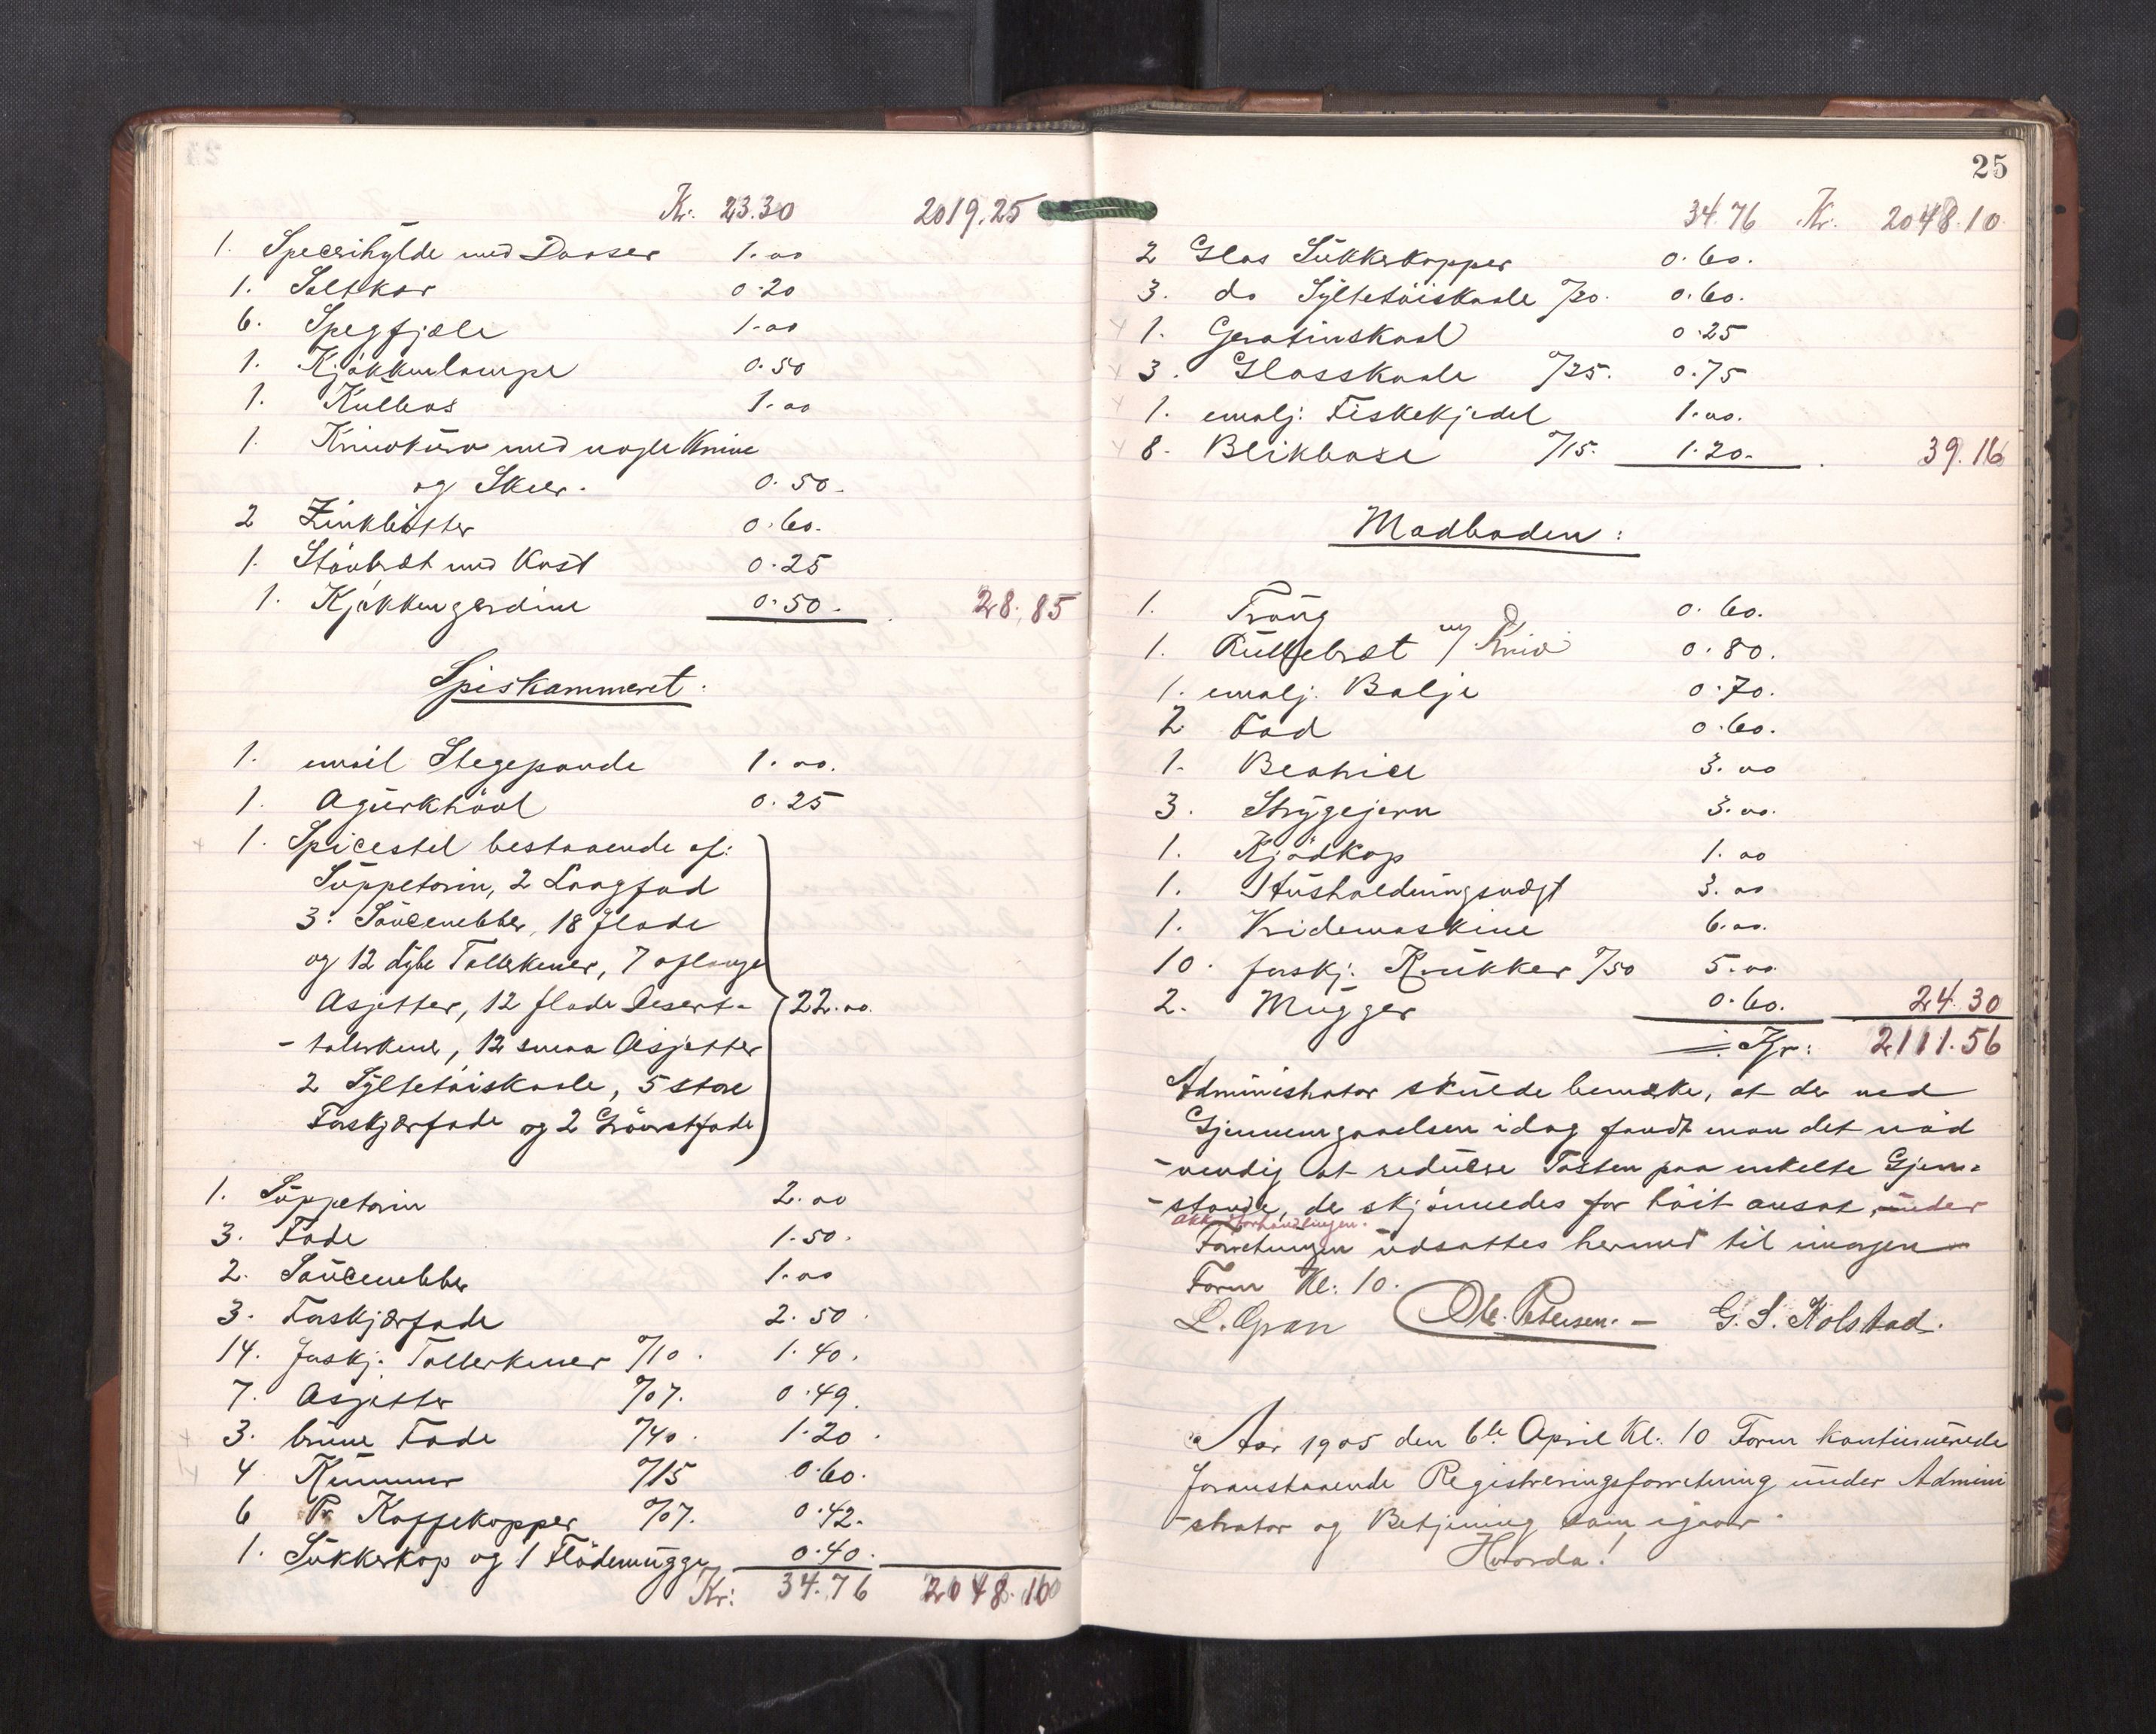 Kr. 23.30 2019.25
1. Specerihylde med Daaser 1.00
1. Saltkar 0.20
6. Spegfjæle 1.00
1. Kjøkkenlampe 0.50
1. Kulbas 1.00
1. Knivkurv med nogle Knive
og Skeer. 0.50.
2 Zinkbøtter 0.60.
1. Støvbræt med Kost 0.25
1. Kjøkkengardine 0.50. 28.85
Spiskammeret:
1. email Stegepande 1.00.
1. Agurkhøvl 0.25
1. Spicestel bestaaende af:
Suppeterin, 2 Langfad
3. Saucenebber, 18 flade
og 12 dybe Tallerkener, 7 aflange
Asjetter, 12 flade Desert-
-talerkener, 12 smaa Asjetter 22.00.
2 Syltetøiskaale, 5 store
Forskjærfade og 2 Grønstfade
1. Suppeterin 2.00
3. Fade 1.50.
2. Saucenebber 1.00
3. Forskjærfade 2.50.
14. forskj. Tallerkener º/10. 1.40.
7. Asjetter º/07. 0.49.
3. brune Fade º/40. 1.20.
4 Kummer º/15 0.60.
6 Pr. Kaffekopper º/07. 0.42.
1. Sukkerkop og 1 Flødemugge 0.40.
Kr: 34.76 2048.10
25
34.76 Kr. 2048.10
2 Glas Sukkerkopper 0.60.
3. do Syltetøiskaale º/20. 0.60.
1. Geratinskaal 0.25
3. Glasskaale º/25. 0.75
1. emalj: Fiskekjedel 1.00.
8. Blikboxe º/15. 1.20. 39.16
Madboden:
1. Traug 0.60.
1. Rullebræt m/ Kniv 0.80.
1. emalj. Balje 0.70.
2 Fad 0.60.
1. 3.00
3. Strygejern 3.00.
1. Kjødkop 1.00
1. Husholdningsvægt 3.00
1. Vridemaskine 6.00.
10. forskj. Krukker º/50 5.00
2. Mugger 0.60. 24.30
Kr: 2111.56
Administrator skulde bemærke, at der ved
Gjennemgaaelsen idag fandt man det nød
-vendig at reducere Taxten paa enkelte Gjen-
-stande, de skjønnedes for høit ansat, under
akk. forhandlingen.
Forretningen udsattes hermed til imorgen
Form Kl: 10.
L. Gran Ole Petersen. – G. S. Kolstad.
Aar 1905 den 6te April Kl. 10 Form kontinuerede
foranstaaende Registreringsforretning under Admini
-strator og Betjening som igaar.
Hvorda!